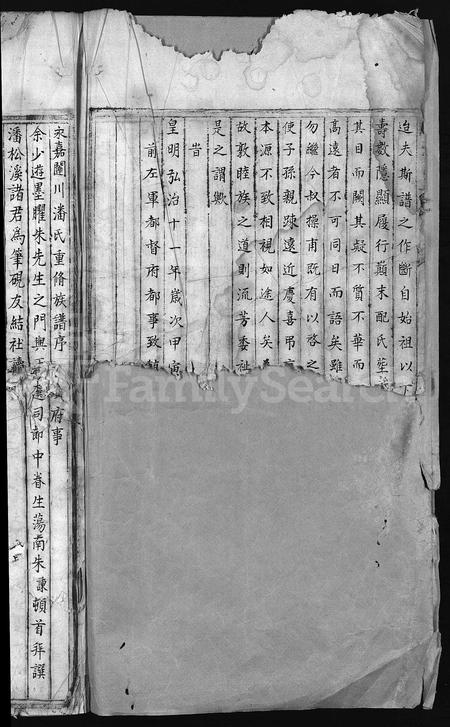 迨夫斯譜之作斷自始祖以下
壽數隱顯履行巔末配氏塋
其目而闕其疑不質不華而
高遠者不可同日而語矣雖
勿繼今叔操甫既有以啓之
使子孫親踈遠近慶喜弔
本源不致相視如途人矣
故敦睦族之道則流芳委祉
是之謂歟
旹
皇明弘治十一年歲次甲寅
前左軍都督府都事致
永嘉闗川潘氏重脩族譜序
府事
余少遊墨臞朱先生之門與
遠司郎中眷生蕩南朱諫頓首拜譔
潘松溪諸君為筆硯友結社讀
FamilySearch